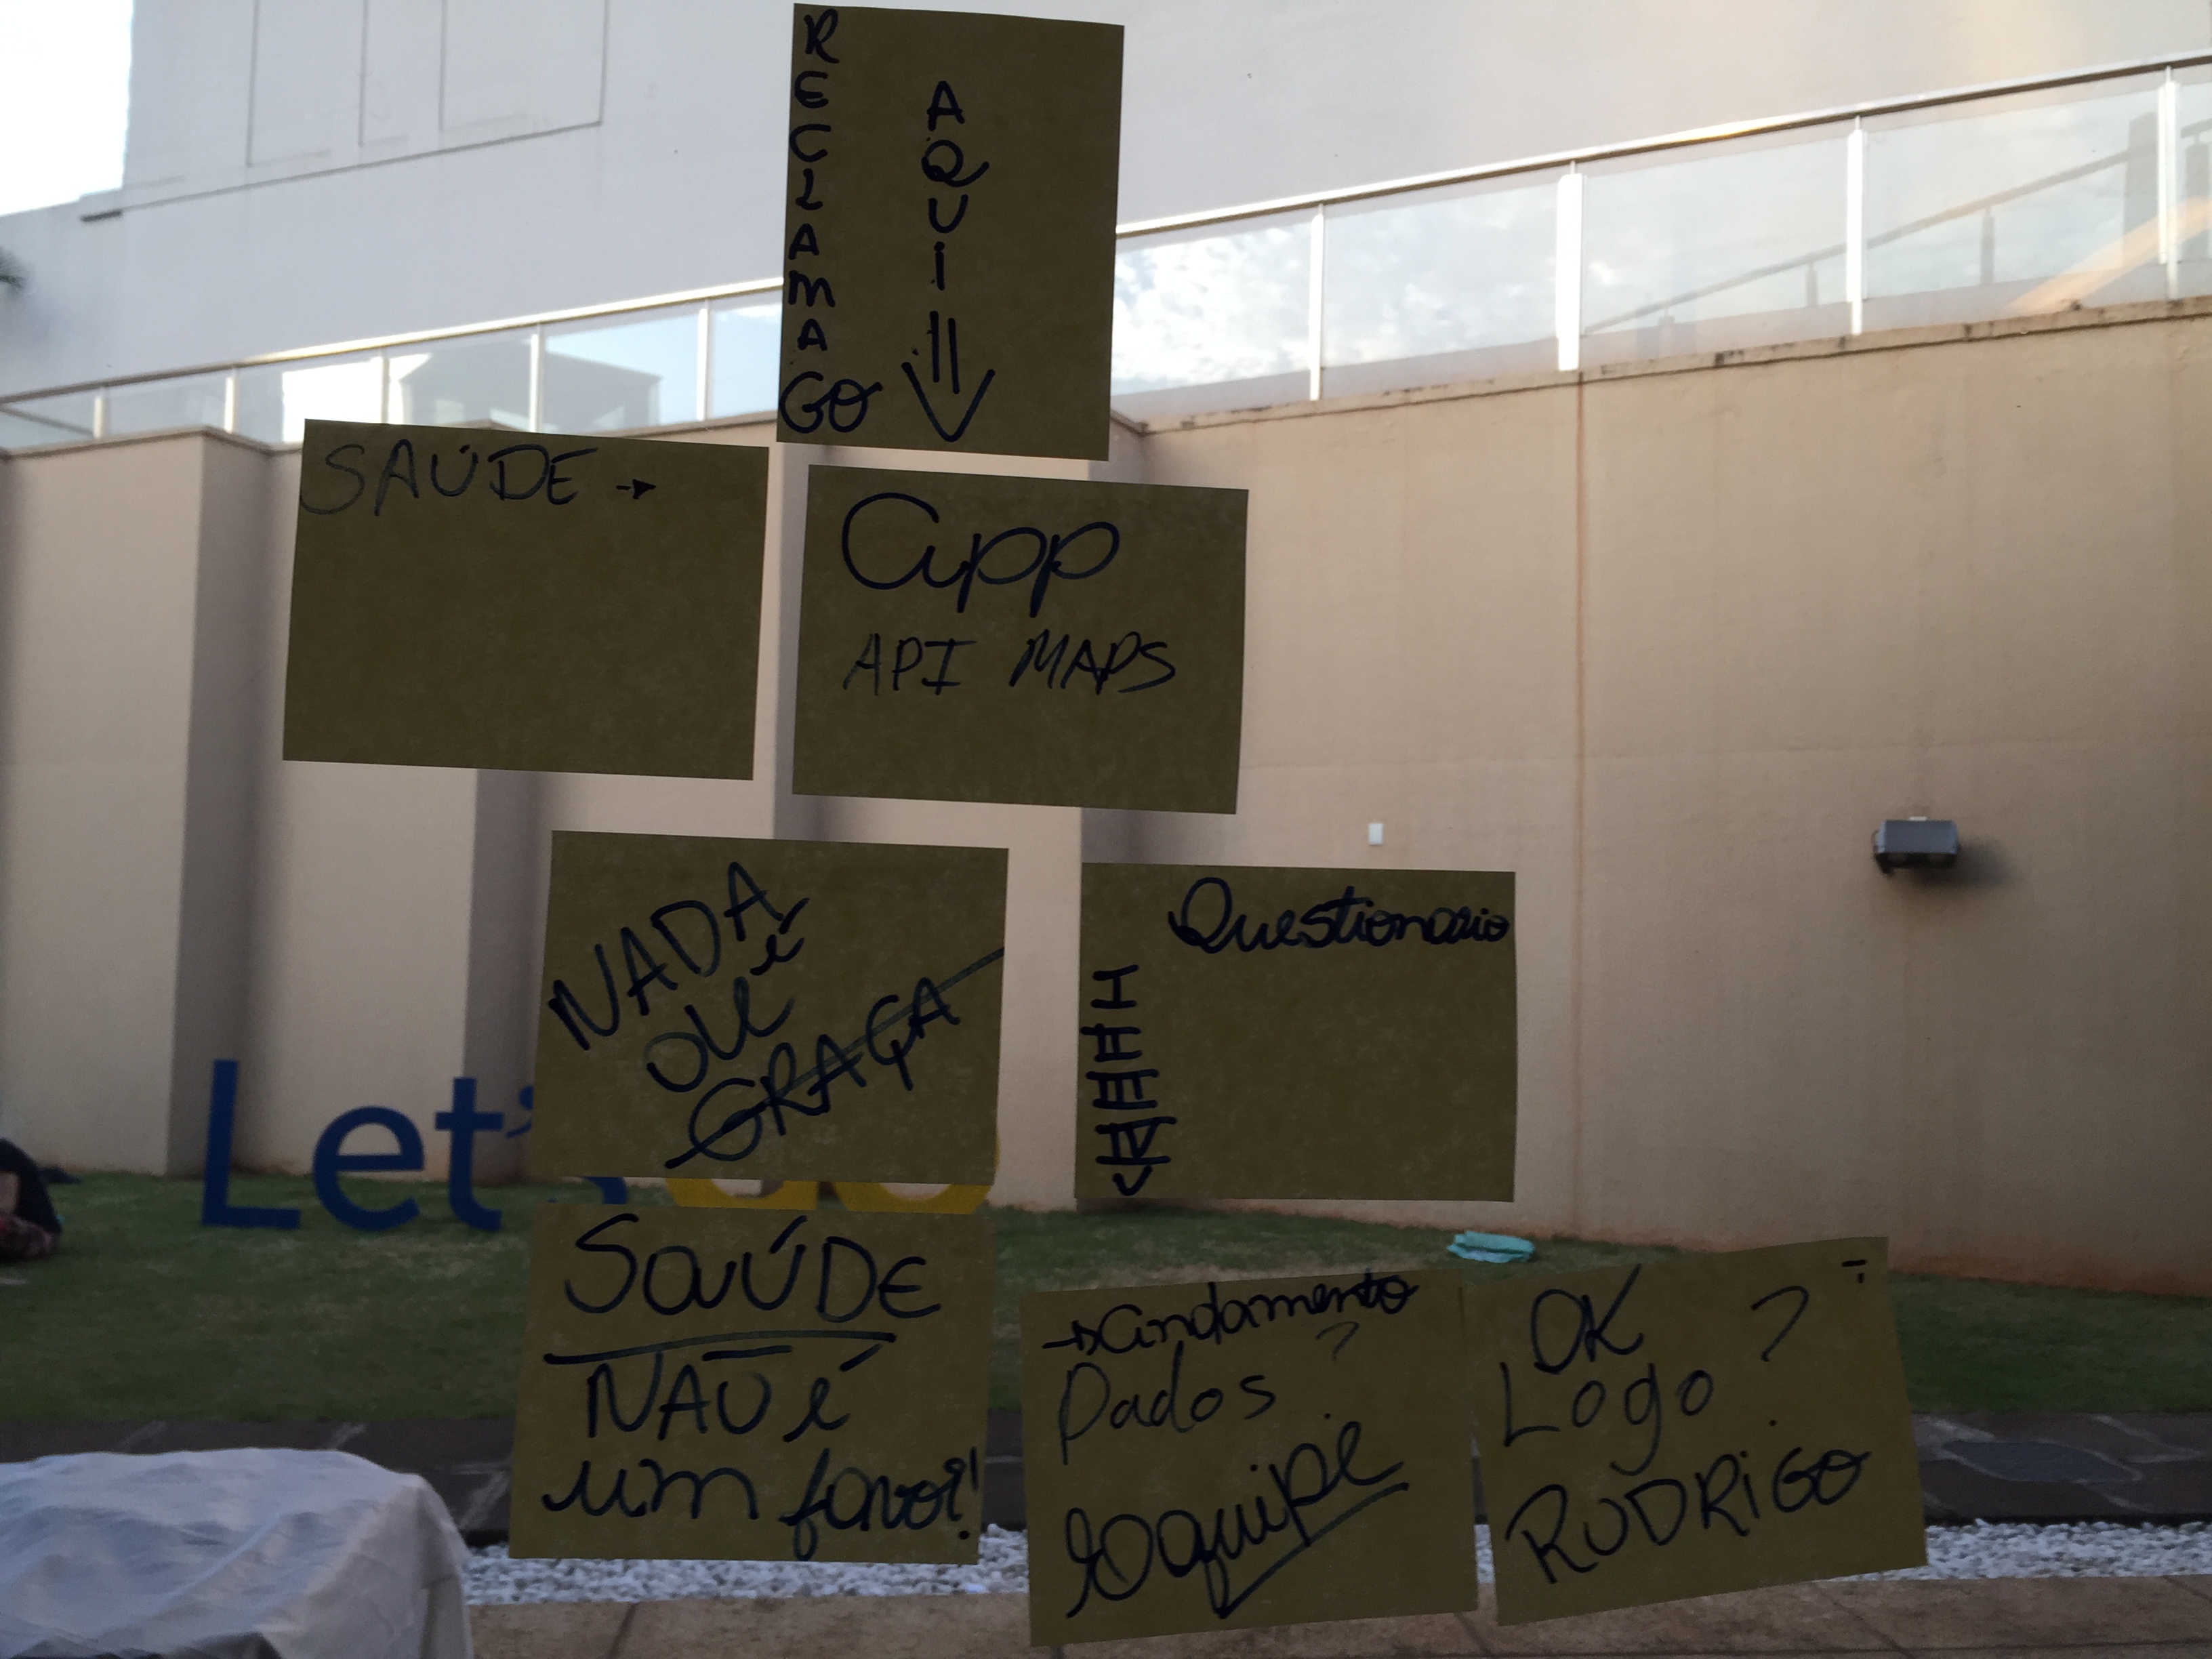 RECLAMA GO
AQUi
SAÚDE →
App
API MAPS
NADA
é
QUE
GRAÇA
Questionario
Let's
GO
SAÚDE
NÃO é
um favor!
→ Andamento
Dados ?
Equipe
OK
Logo ?
RODRiGO